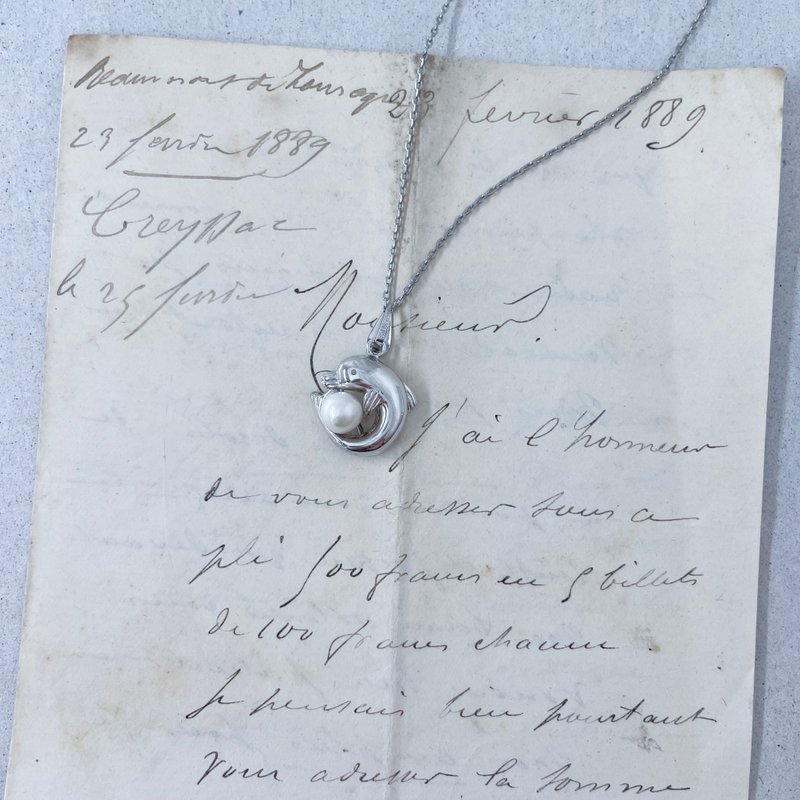 23 février 1889.
23 février 1889
le 25 février
Monsieur.
J'ai l'honneur
de vous adresser sous ce
pli 500 francs en 5 billets
de 100 francs chacun.
Je pensais bien pourtant
vous adresser la somme